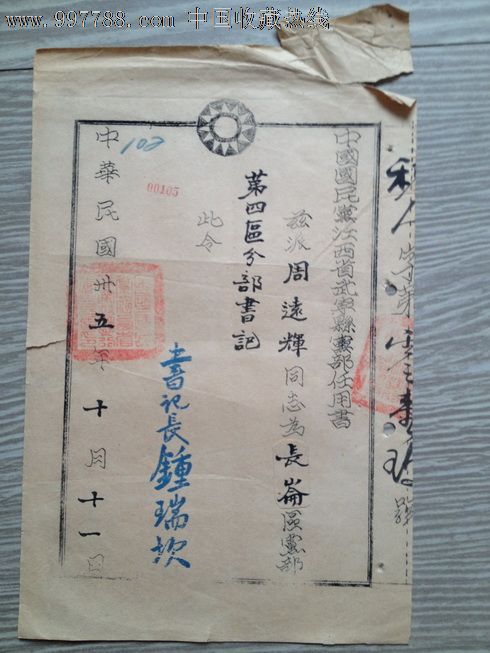 www.997788.com 中国收藏热线
中國國民黨江西省武寧縣黨部任用書
茲派周遠輝同志為長崙區黨部
第四區分部書記
此令
書記長鍾瑞
中華民國卅五年十月十一日
102
00105
字第
號